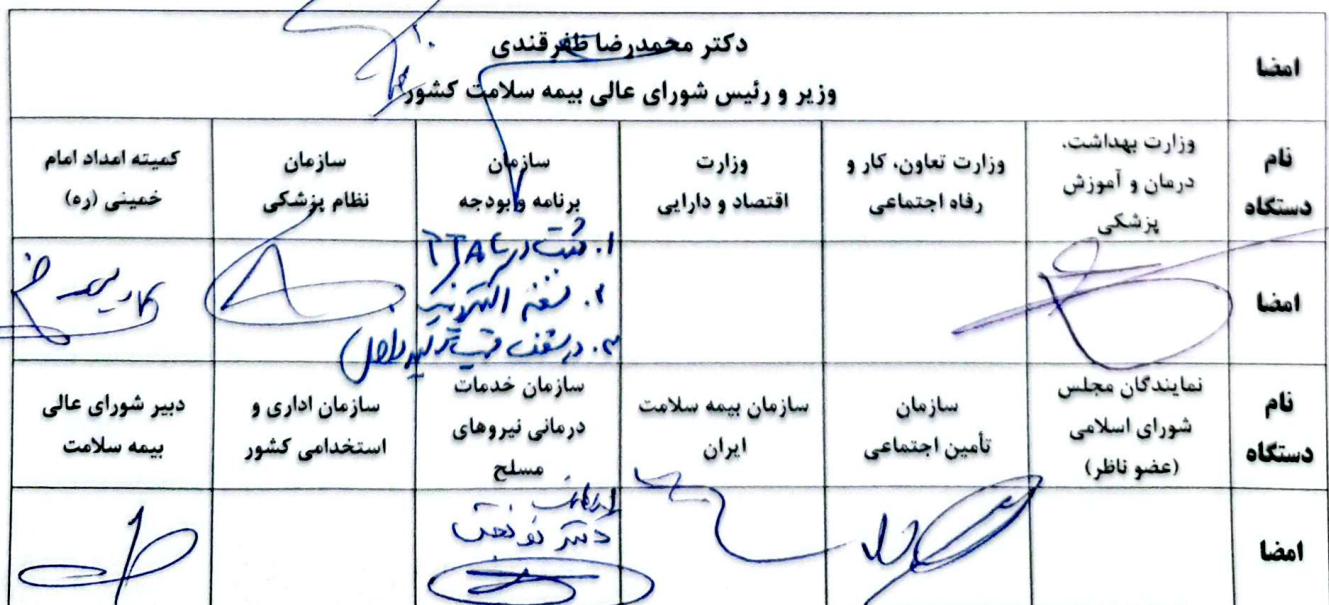 امضا
دکتر محمدرضا ظفرقندی
وزیر و رئیس شورای عالی بیمه سلامت کشور
نام
دستگاه
وزارت بهداشت،
درمان و آموزش
پزشکی
وزارت تعاون، کار و
رفاه اجتماعی
وزارت
اقتصاد و دارایی
سازمان
برنامه و بودجه
سازمان
نظام پزشکی
کمیته امداد امام
خمینی (ره)
امضا
۱. ثبت در TTAC
۲. نسخه الکترونیک
۳. در سقف قیمت تولید داخل)
نام
دستگاه
نمایندگان مجلس
شورای اسلامی
(عضو ناظر)
سازمان
تأمین اجتماعی
سازمان بیمه سلامت
ایران
سازمان خدمات
درمانی نیروهای
مسلح
سازمان اداری و
استخدامی کشور
دبیر شورای عالی
بیمه سلامت
امضا
دکتر نوبخت